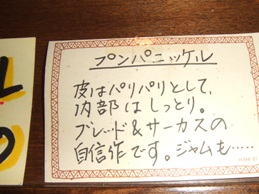 プンパニッケル
皮はパリパリとして、
内部はしっとり。
ブレッド&サーカスの
自信作です。ジャムも……